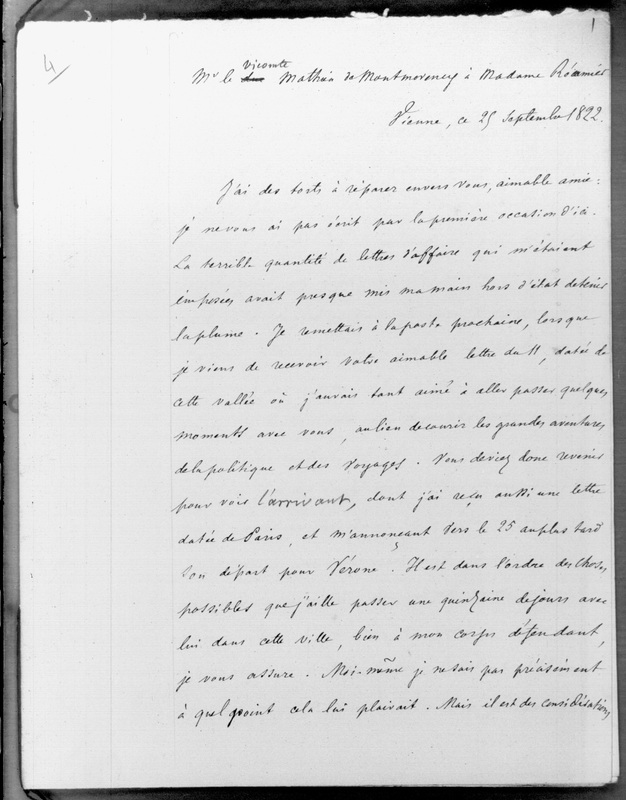 4
1
vicomte
Mr le duc Mathieu de Montmorency à Madame Récamier
Vienne, ce 25 Septembre 1822.
J'ai des torts à réparer envers vous, aimable amie :
je ne vous ai pas écrit par la première occasion d'ici.
La terrible quantité de lettres d'affaire qui m'étaient
imposées avait presque mis ma main hors d'état de tenir
la plume. Je remettais à la poste prochaine, lorsque
je viens de recevoir votre aimable lettre du 11, datée de
cette vallée où j'aurais tant aimé à aller passer quelques
moments avec vous, au lieu de courir les grandes aventures
de la politique et des voyages. Vous deviez donc revenir
pour voir l'arrivant, dont j'ai reçu aussi une lettre
datée de Paris, et m'annonçant vers le 25 au plus tard
son départ pour Vérone. Il est dans l'ordre des choses
possibles que j'aille passer une quinzaine de jours avec
lui dans cette ville, bien à mon corps défendant,
je vous assure. Moi-même je ne sais pas précisément
à quel point cela lui plairait. Mais il est des considérations